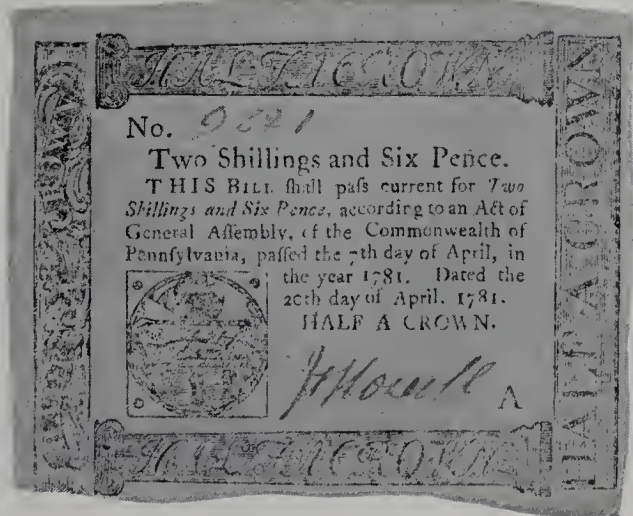 HALF A CROWN
No. 9241
Two Shillings and Six Pence.
THIS BILL ſhall paſs current for Two
Shillings and Six Pence, according to an Act of
General Aſſembly, of the Commonwealth of
Pennſylvania, paſſed the 7th day of April, in
the year 1781. Dated the
20th day of April. 1781.
HALF A CROWN.
A
HALF A CROWN
HALF A CROWN